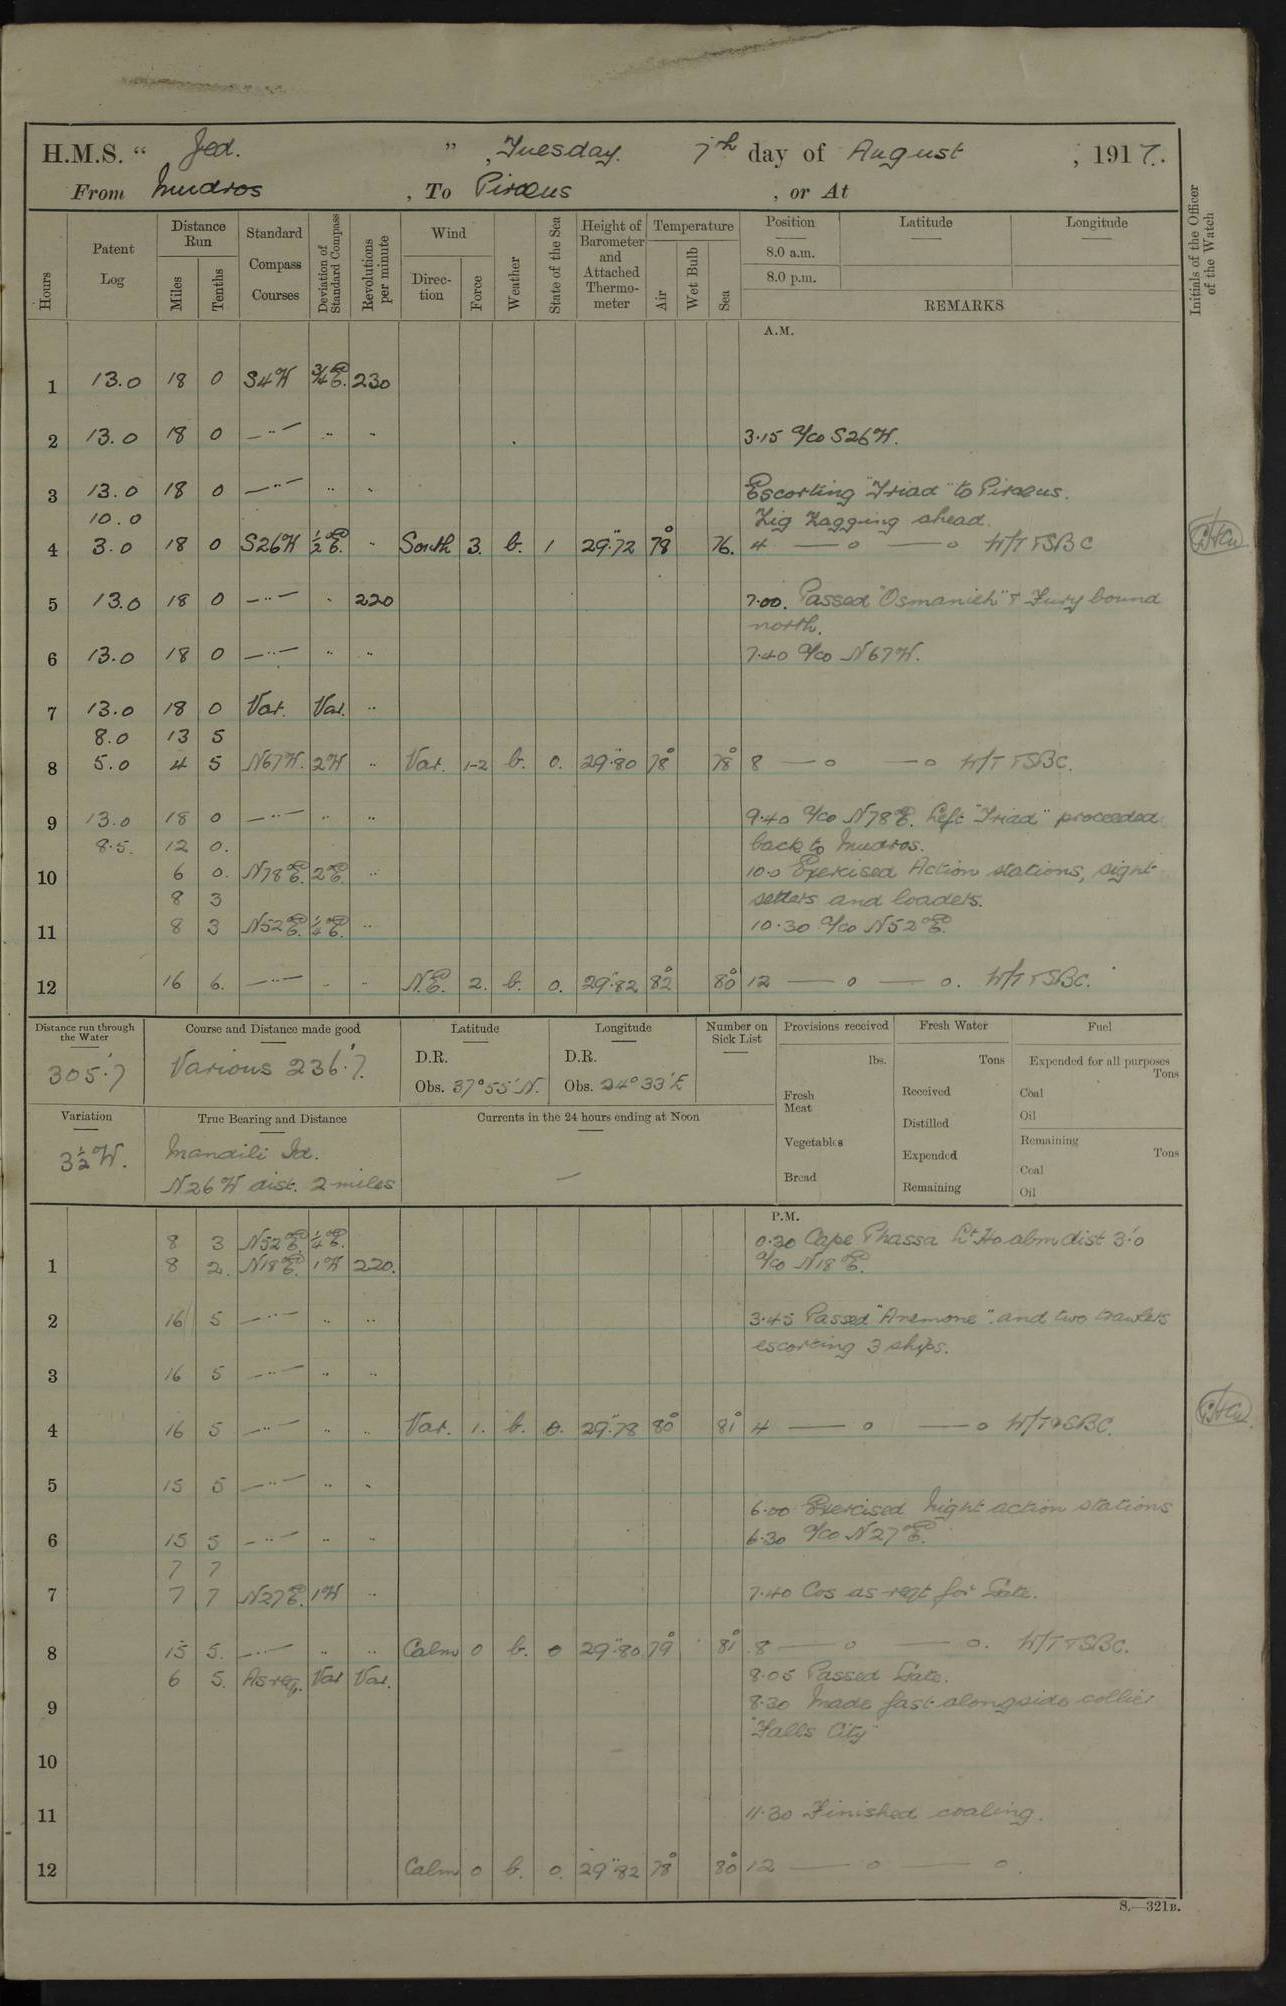 H.M.S. " Jed. ", Tuesday. 7th day of August, 1917.
From Mudros, To Piraeus, or At
Hours Patent Log Distance Run Miles Tenths Standard Compass Courses Deviation of Standard Compass Revolutions per minute Wind Direction Force Weather State of the Sea Height of Barometer and Attached Thermometer Temperature Air Wet Bulb Sea Position Latitude Longitude
8.0 a.m.
8.0 p.m.
REMARKS
Initials of the Officer of the Watch
A.M.
1 13.0 18 0 S4W ¾E. 230
2 13.0 18 0 —"— " " 3.15 a/co S26W.
3 13.0 18 0 —"— " " Escorting "Triad" to Piraeus.
10.0 Zig Zagging ahead.
4 3.0 18 0 S26W ½E. " South 3. b. 1 29.72 78° 76. 4 — o — o W/T TSBC
5 13.0 18 0 —"— " 220 7.00. Passed "Osmanieh" & Fury bound
north.
6 13.0 18 0 —"— " " 7.40 a/co N67W.
7 13.0 18 0 Var. Var. "
8.0 13 5
8 5.0 4 5 N67W. 2W " Var. 1-2 b. 0. 29.80 78° 78° 8 — o — o W/T TSBC.
9 13.0 18 0 —"— " " 9.40 a/co N78E. Left "Triad" proceeded
8.5. 12 0. back to Mudros.
10 6 0. N78E. 2E " 10.0 Exercised Action stations, sight
8 3 setters and loaders.
11 8 3 N52E. ¼E. " 10.30 a/co N52E.
12 16 6. —"— " " N.E. 2. b. 0. 29.82 82° 80° 12 — o — o. W/T TSBC.
Distance run through the Water Course and Distance made good Latitude Longitude Number on Sick List Provisions received Fresh Water Fuel
305.7 Various 236.7. D.R. D.R. lbs. Tons Expended for all purposes Tons
Obs. 37°55'N. Obs. 24°33'E Fresh Meat Received Coal
Distilled Oil
Variation True Bearing and Distance Currents in the 24 hours ending at Noon Vegetables Expended Remaining Tons
3½W. Mandili Id. — Coal
N26W dist. 2 miles Bread Remaining Oil
P.M.
8 3 N52E. ¼E. 0.30 Cape Phassa Lt Ho abm dist 3'.0
1 8 2. N18E. 1W 220. a/co N18E.
2 16 5 —"— " " 3.45 Passed "Anemone". and two trawlers
escorting 3 ships.
3 16 5 —"— " "
4 16 5 —"— " Var. 1. b. 0. 29.78 80° 81° 4 — o — o W/T TSBC.
5 15 5 —"— " "
6.00 Exercised Night action stations
6 15 5 —"— " " 6.30 a/co N27E.
7 7
7 7 7 N27E. 1W " 7.40 Cos as reqt for Gate.
8 15 5. —"— " " Calm 0 b. 0 29.80 79° 81° 8 — o — o. W/T TSBC.
6 5. As req. Var Var. 8.05 Passed Gate.
9 8.30 Made fast alongside collier
"Falls City"
10
11 11.30 Finished coaling.
12 Calm 0 b. 0. 29.82 78° 80° 12 — o — o.
S.—321B.